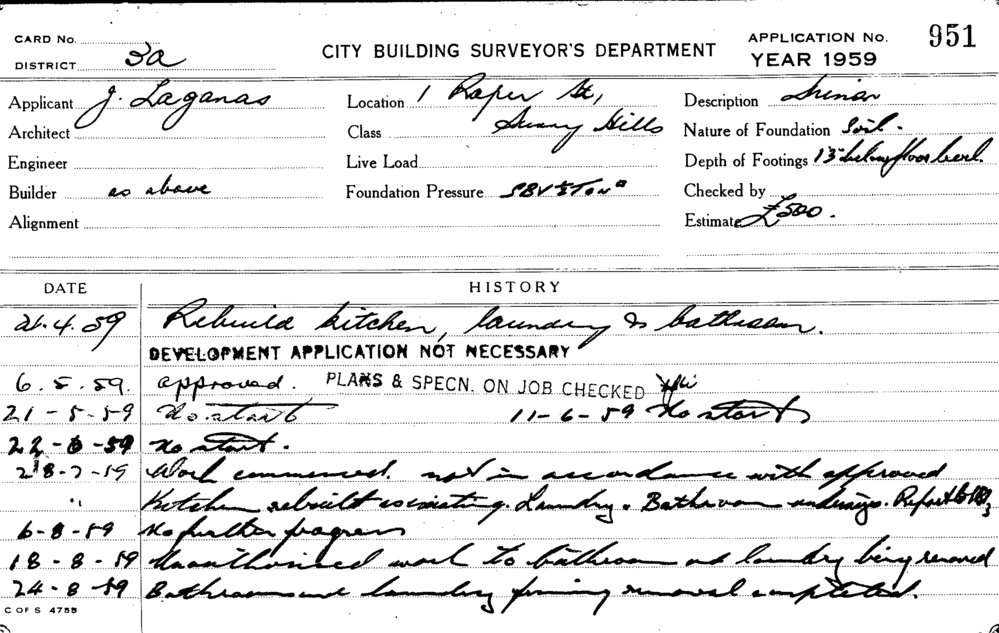 CARD No.
CITY BUILDING SURVEYOR'S DEPARTMENT
APPLICATION No. 951
DISTRICT 3a
YEAR 1959
Applicant J. Laganas
Location 1 Raper St,
Description Minor
Architect
Class Surry Hills
Nature of Foundation Soil.
Engineer
Live Load
Depth of Footings 13" below floor level.
Builder as above
Foundation Pressure
Checked by
Alignment
Estimate £500.
DATE HISTORY
21.4.59 Rebuild kitchen, laundry & bathroom.
DEVELOPMENT APPLICATION NOT NECESSARY
6.5.59. approved. PLANS & SPECN. ON JOB CHECKED
21-5-59 No start 11-6-59 No start
22-6-59 No start.
28-7-59 Work commenced. not in accordance with approved
" Kitchen rebuilt as existing. Laundry & Bathroom
6-8-59 No further progress
18-8-59 Unauthorised work to bathroom and laundry being removed
24-8-59 Bathroom and laundry framing removal completed.
C OF S 4755